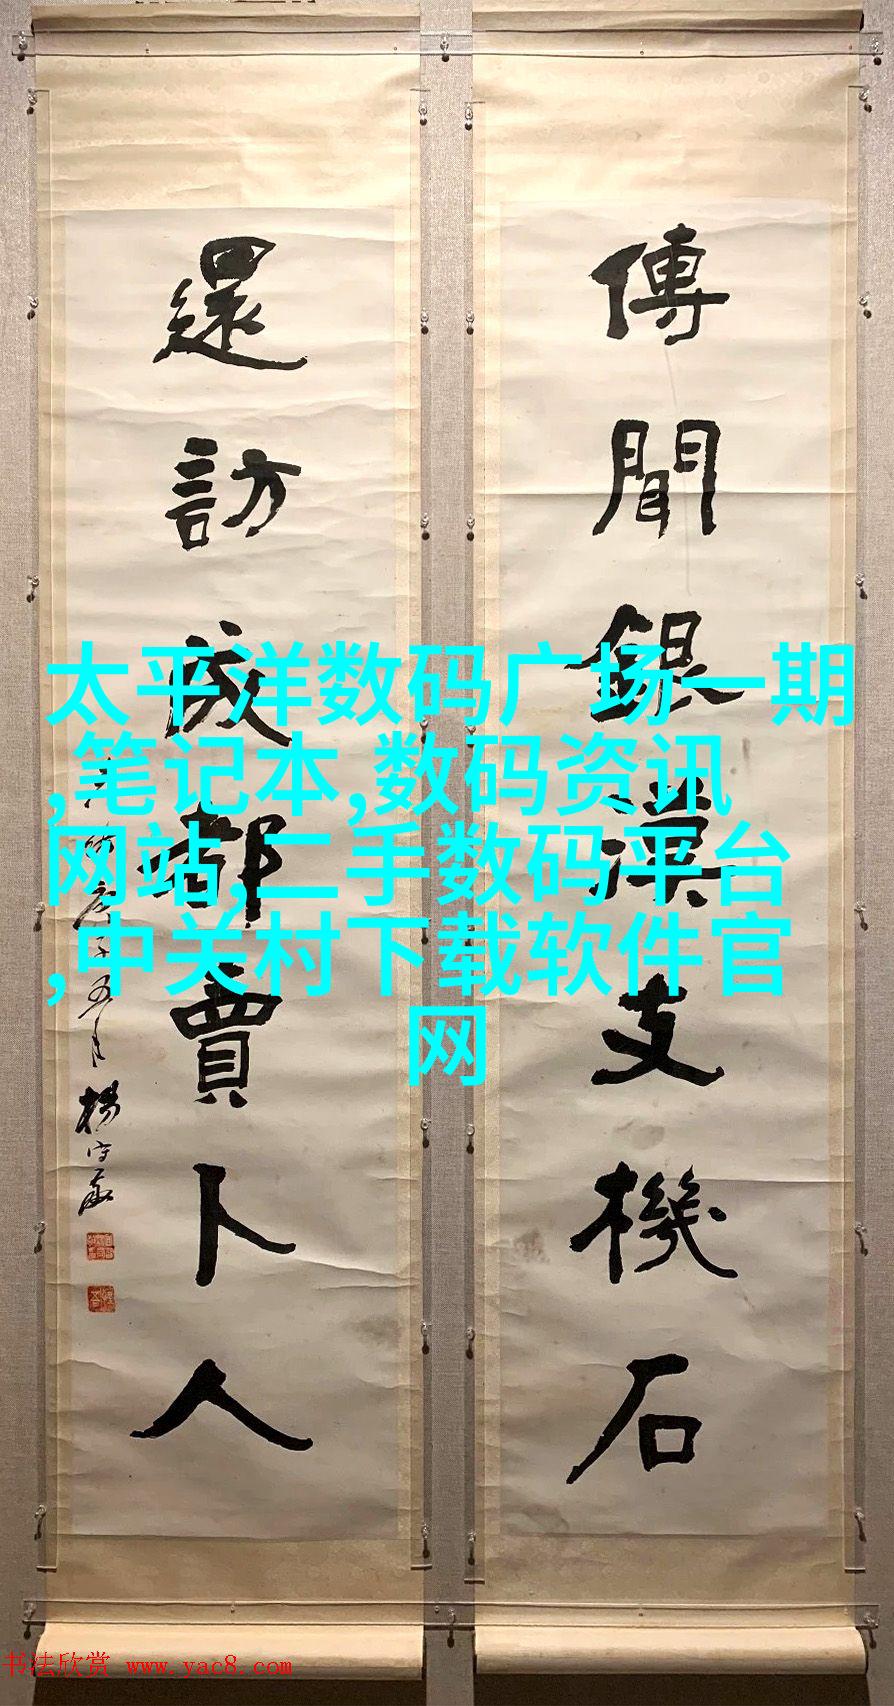 傳聞銀漢支機石
還訪成都賣卜人
楊守敬
太平洋数码广场一期
,笔记本,数码资讯
网站,二手数码平台
,中关村下载软件官
网
书法欣赏 www.yac8.com